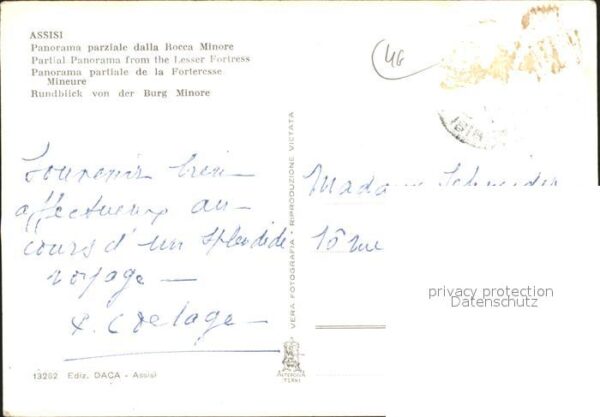 ASSISI
Panorama parziale dalla Rocca Minore
Partial Panorama from the Lesser Fortress
Panorama partiale de la Forteresse
Mineure
Rundblick von der Burg Minore
46
Souvenir bien
affectueux au
cours d'un splendide
voyage —
Madame Schneider
VERA FOTOGRAFIA - RIPRODUZIONE VIETATA
privacy protection
Datenschutz
13262 Ediz. DACA - Assisi
TERNI